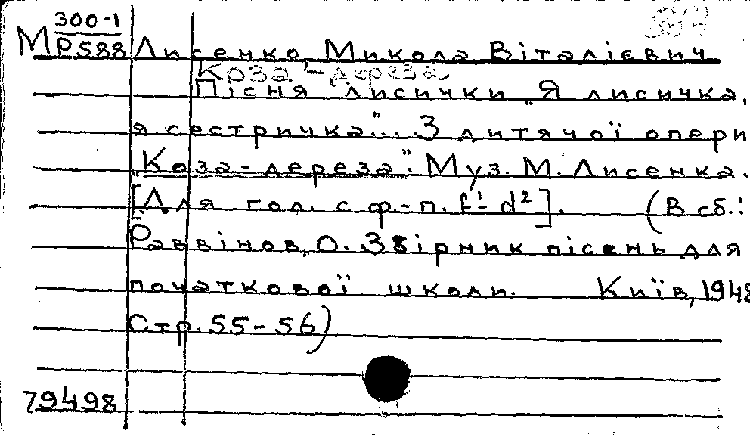 300-1
М Р588 Лисенко, Микола Віталієвич
Коза-дереза
Пісня лисички „Я лисичка,
я сестричка"... З дитячої опери
„Коза-дереза". Муз. М. Лисенка.
[Для гол. с ф-п. f¹-d²]. (В сб.:
Раввінов, О. Збірник пісень для
початкової школи. Київ, 1948
Стр. 55-56)
79498